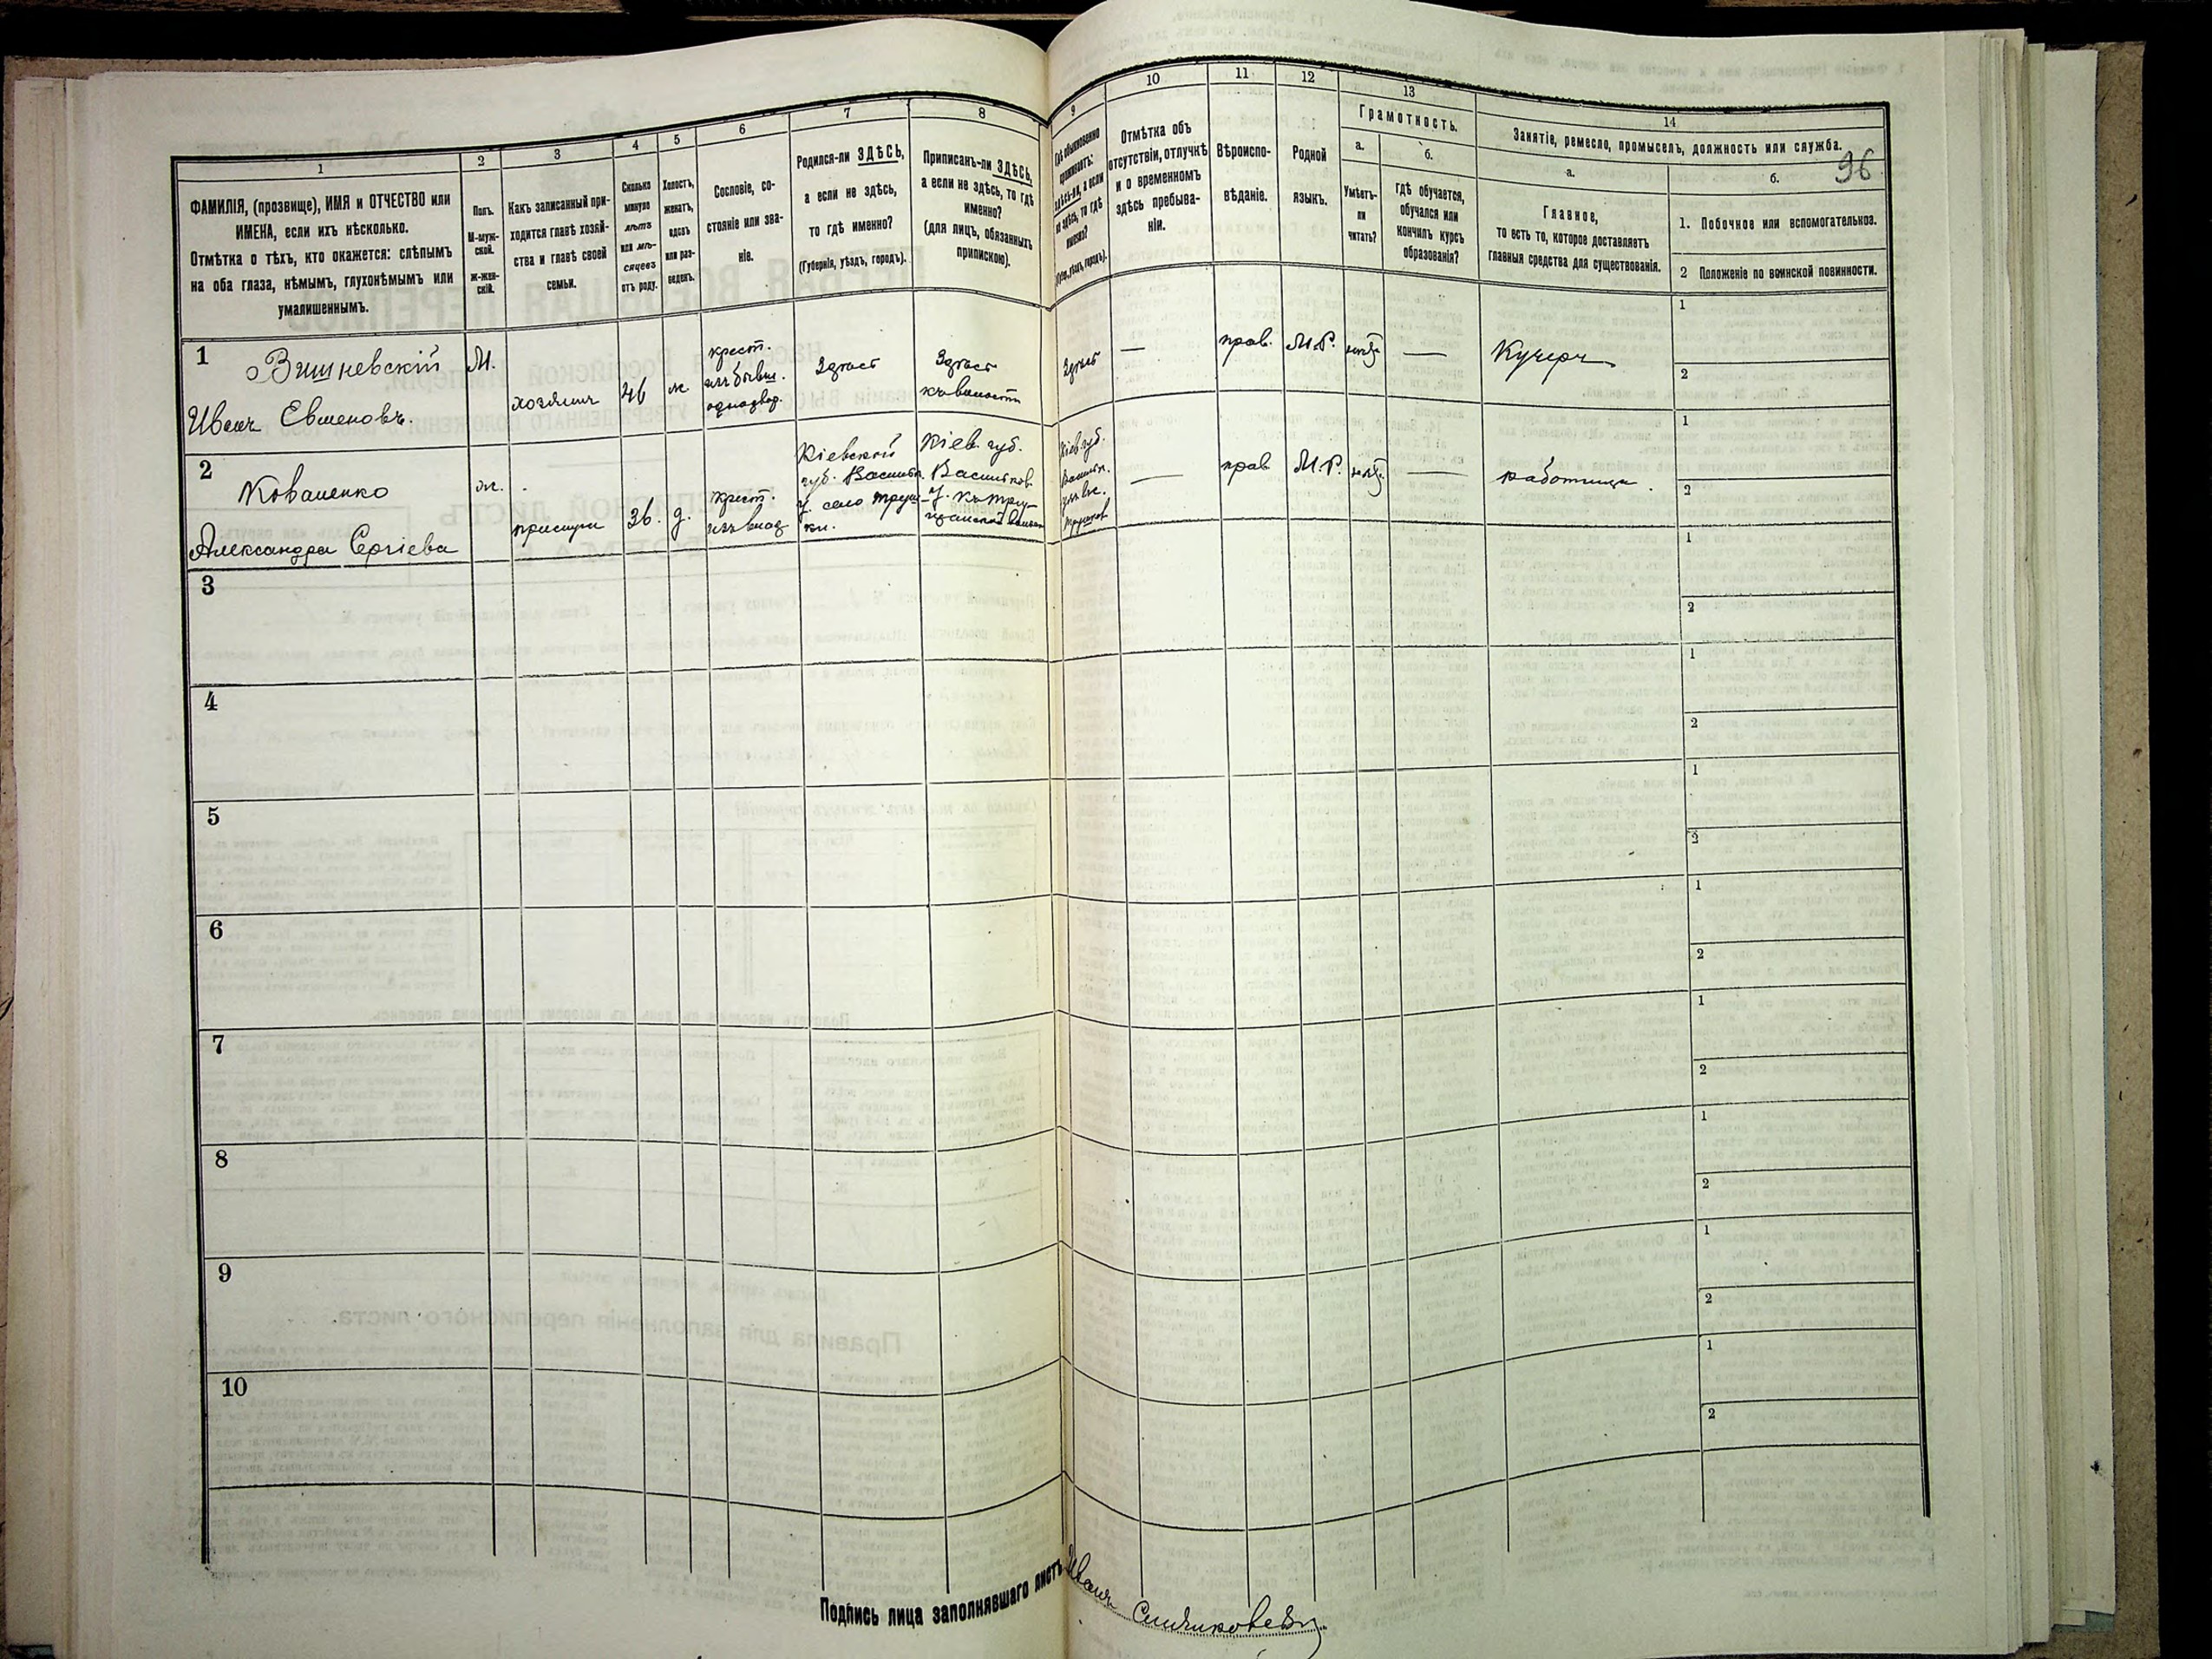 1
ФАМИЛІЯ, (прозвище), ИМЯ и ОТЧЕСТВО или
ИМЕНА, если ихъ нѣсколько.
Отмѣтка о тѣхъ, кто окажется: слѣпымъ
на оба глаза, нѣмымъ, глухонѣмымъ или
умалишеннымъ.
2
Полъ.
М-муж-
ской.
ж-жен-
скій.
3
Какъ записанный при-
ходится главѣ хозяй-
ства и главѣ своей
семьи.
4
Сколько
минуло
лѣтъ
или мѣ-
сяцевъ
отъ роду.
5
Холостъ,
женатъ,
вдовъ
или раз-
веденъ.
6
Сословіе, со-
стояніе или зва-
ніе.
7
Родился-ли ЗДѢСЬ,
а если не здѣсь,
то гдѣ именно?
(Губернія, уѣздъ, городъ).
8
Приписанъ-ли ЗДѢСЬ,
а если не здѣсь, то гдѣ
именно?
(для лицъ, обязанныхъ
припискою).
9
Гдѣ обыкновенно
проживаетъ:
здѣсь-ли, а если
не здѣсь, то гдѣ
именно?
(Губ., уѣздъ, городъ).
10
Отмѣтка объ
отсутствіи, отлучкѣ
и о временномъ
здѣсь пребыва-
ніи.
11
Вѣроиспо-
вѣданіе.
12
Родной
языкъ.
13
Грамотность.
а.
Умѣетъ-
ли
читать?
б.
гдѣ обучается,
обучался или
кончилъ курсъ
образованія?
14
Занятіе, ремесло, промыселъ, должность или служба.
96
а.
Главное,
то есть то, которое доставляетъ
главныя средства для существованія.
б.
1. Побочное или вспомогательное.
2 Положеніе по воинской повинности.
1
Вишневскій
Иванъ
М.
хозяинъ
46
ж
крест.
изъ бывш.
однодвор.
Здѣсь
Здѣсь
къ волости
Здѣсь
—
прав.
М.Р.
нѣтъ
—
Кучеръ
1
2
2
Коваленко
Александра Сергіева
ж.
прислуга
36.
д.
крест.
изъ влад
Кіевской
губ. Васильк.
у. село
Кіев. губ.
Васильков.
у.
Кіев губ.
—
прав
М.Р.
нѣтъ
—
работница.
1
2
3
1
2
4
1
2
5
1
2
6
1
2
7
1
2
8
1
2
9
1
2
10
1
2
Подпись лица заполнявшаго листъ
Иванъ